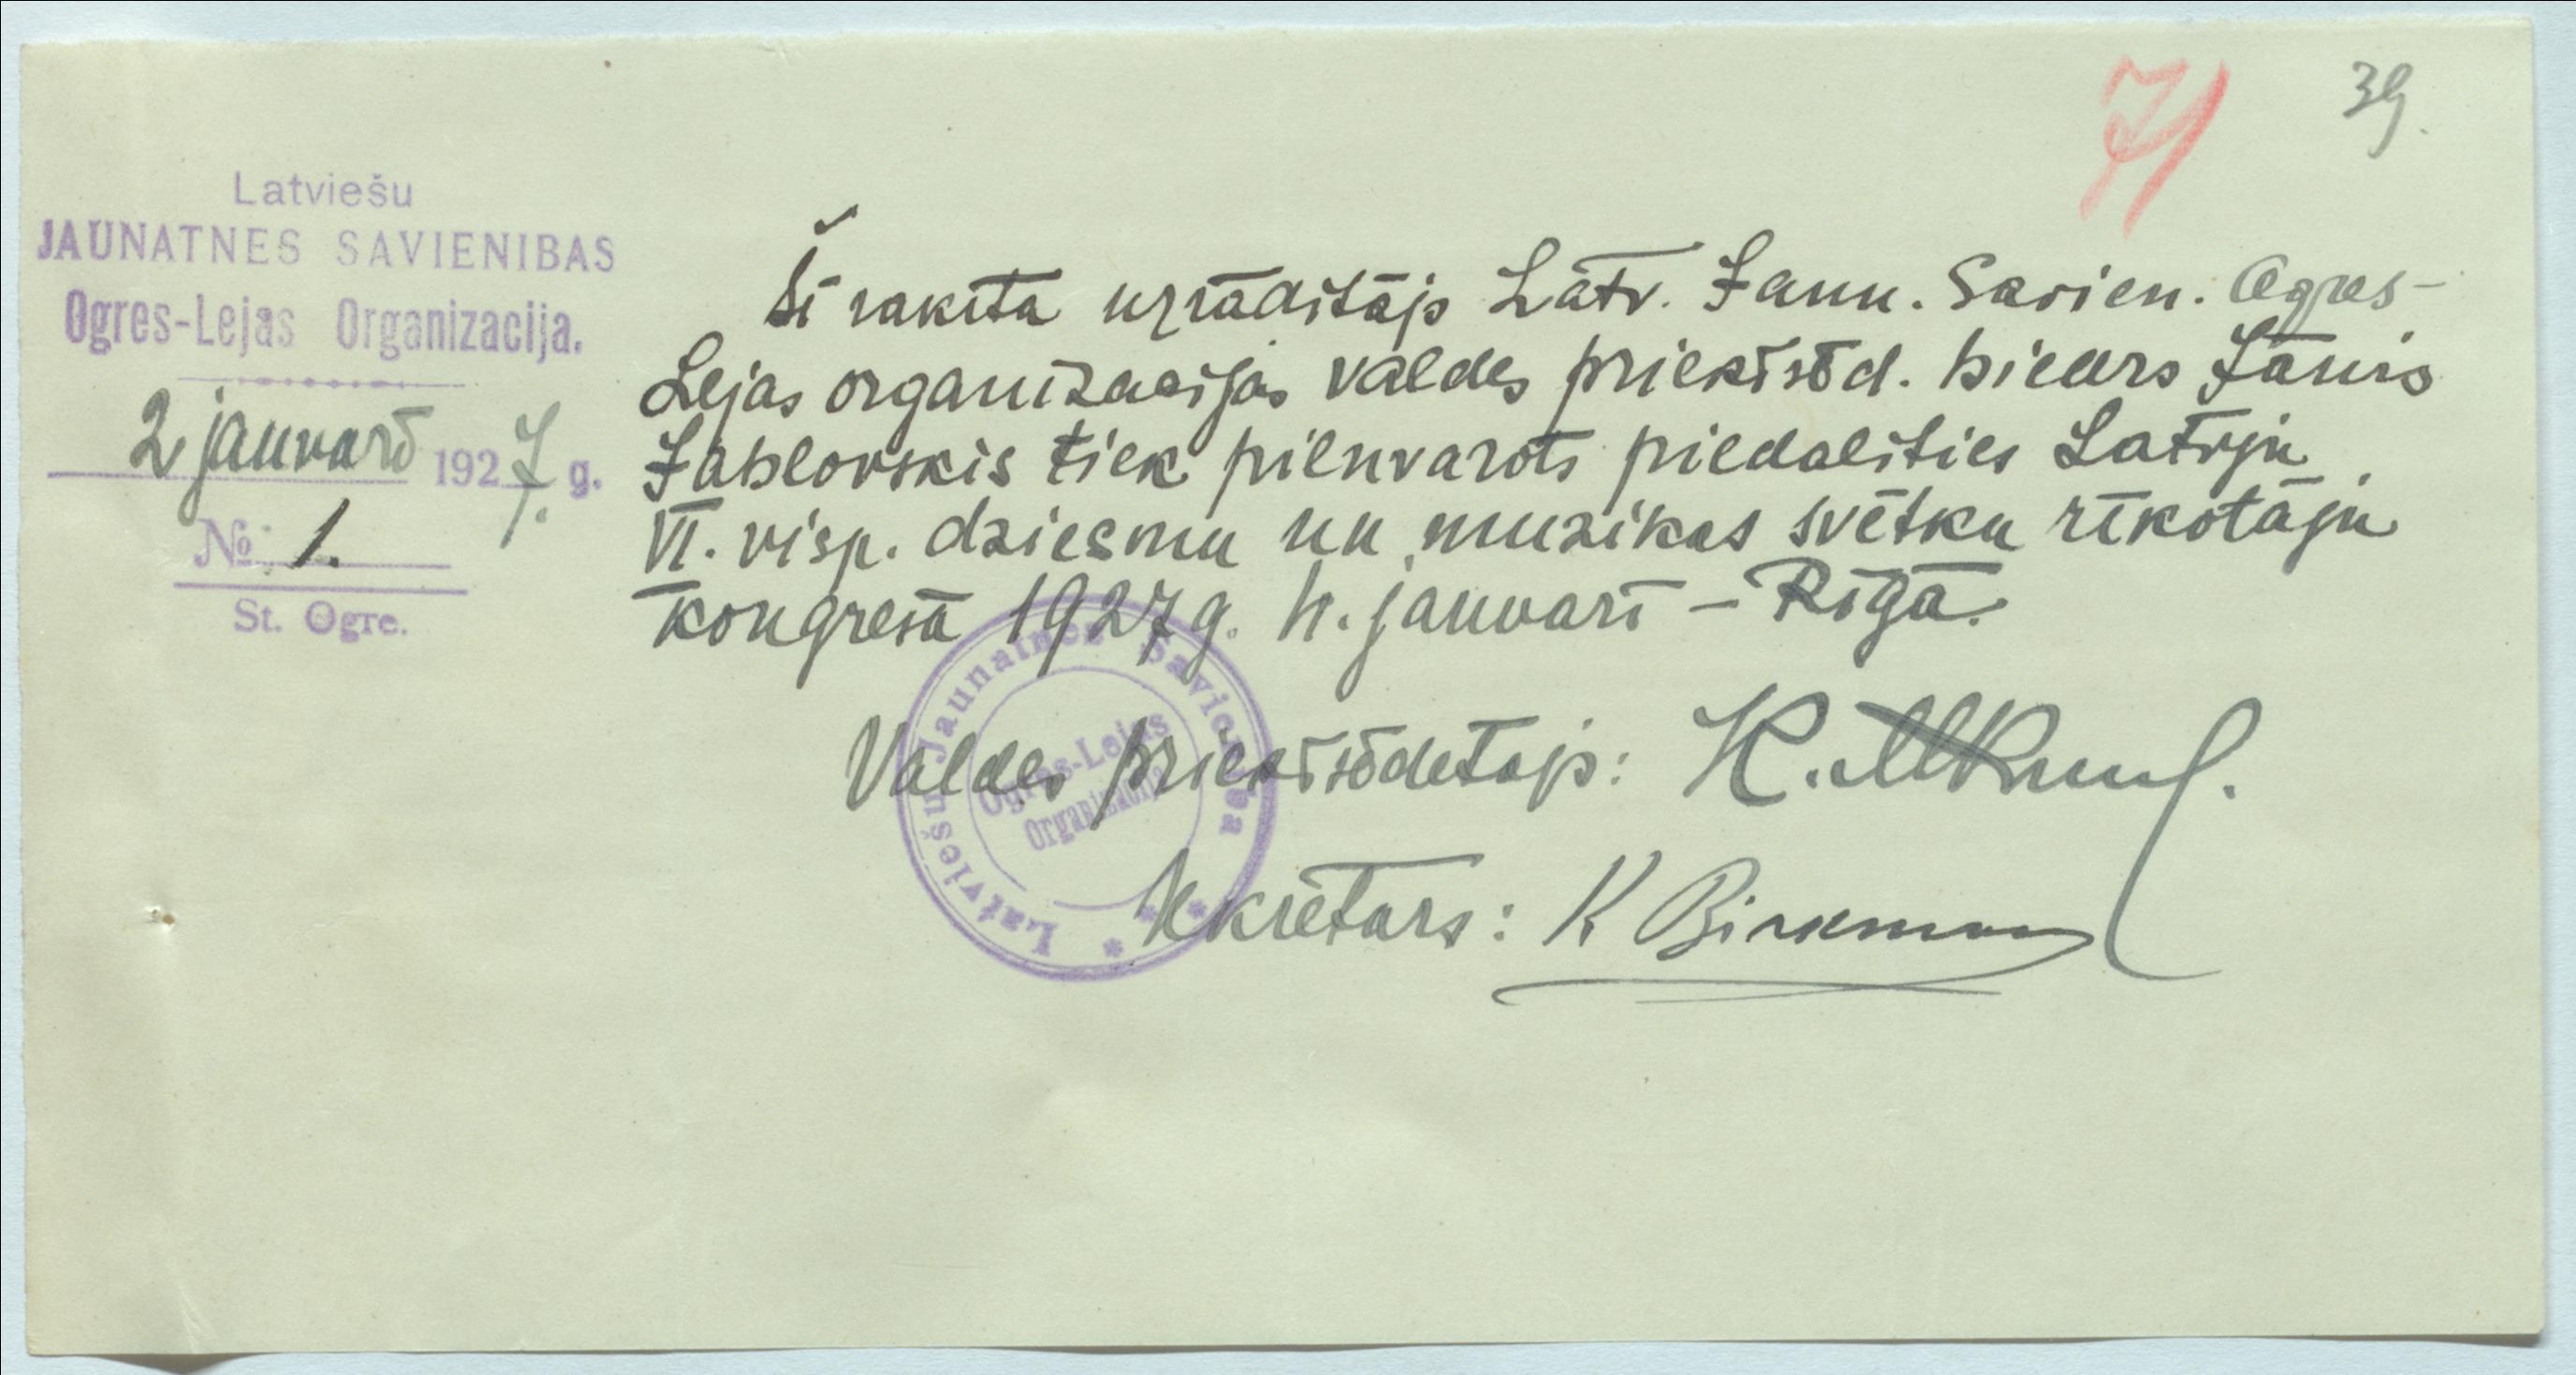 71
39.
Latviešu
JAUNATNES SAVIENIBAS
Ogres-Lejas Organizacija.
2 janvarī 1927. g.
№ 1.
St. Ogre.
Šī raksta uzrādītājs Latv. Jaun. Savien. Ogres-
Lejas organizacijas valdes priekšsēd. biedrs Jānis
Jablovskis tiek pilnvarots piedalīties Latvju
VI. visp. dziesmu un muzikas svētku rīkotāju
kongresā 1927 g. janvarī – Rīgā.
Valdes priekšsēdetajs: K.
Sekretars: K Birkman
Latviešu Jaunatnes Savienība
Ogres-Lejas
Organizacija